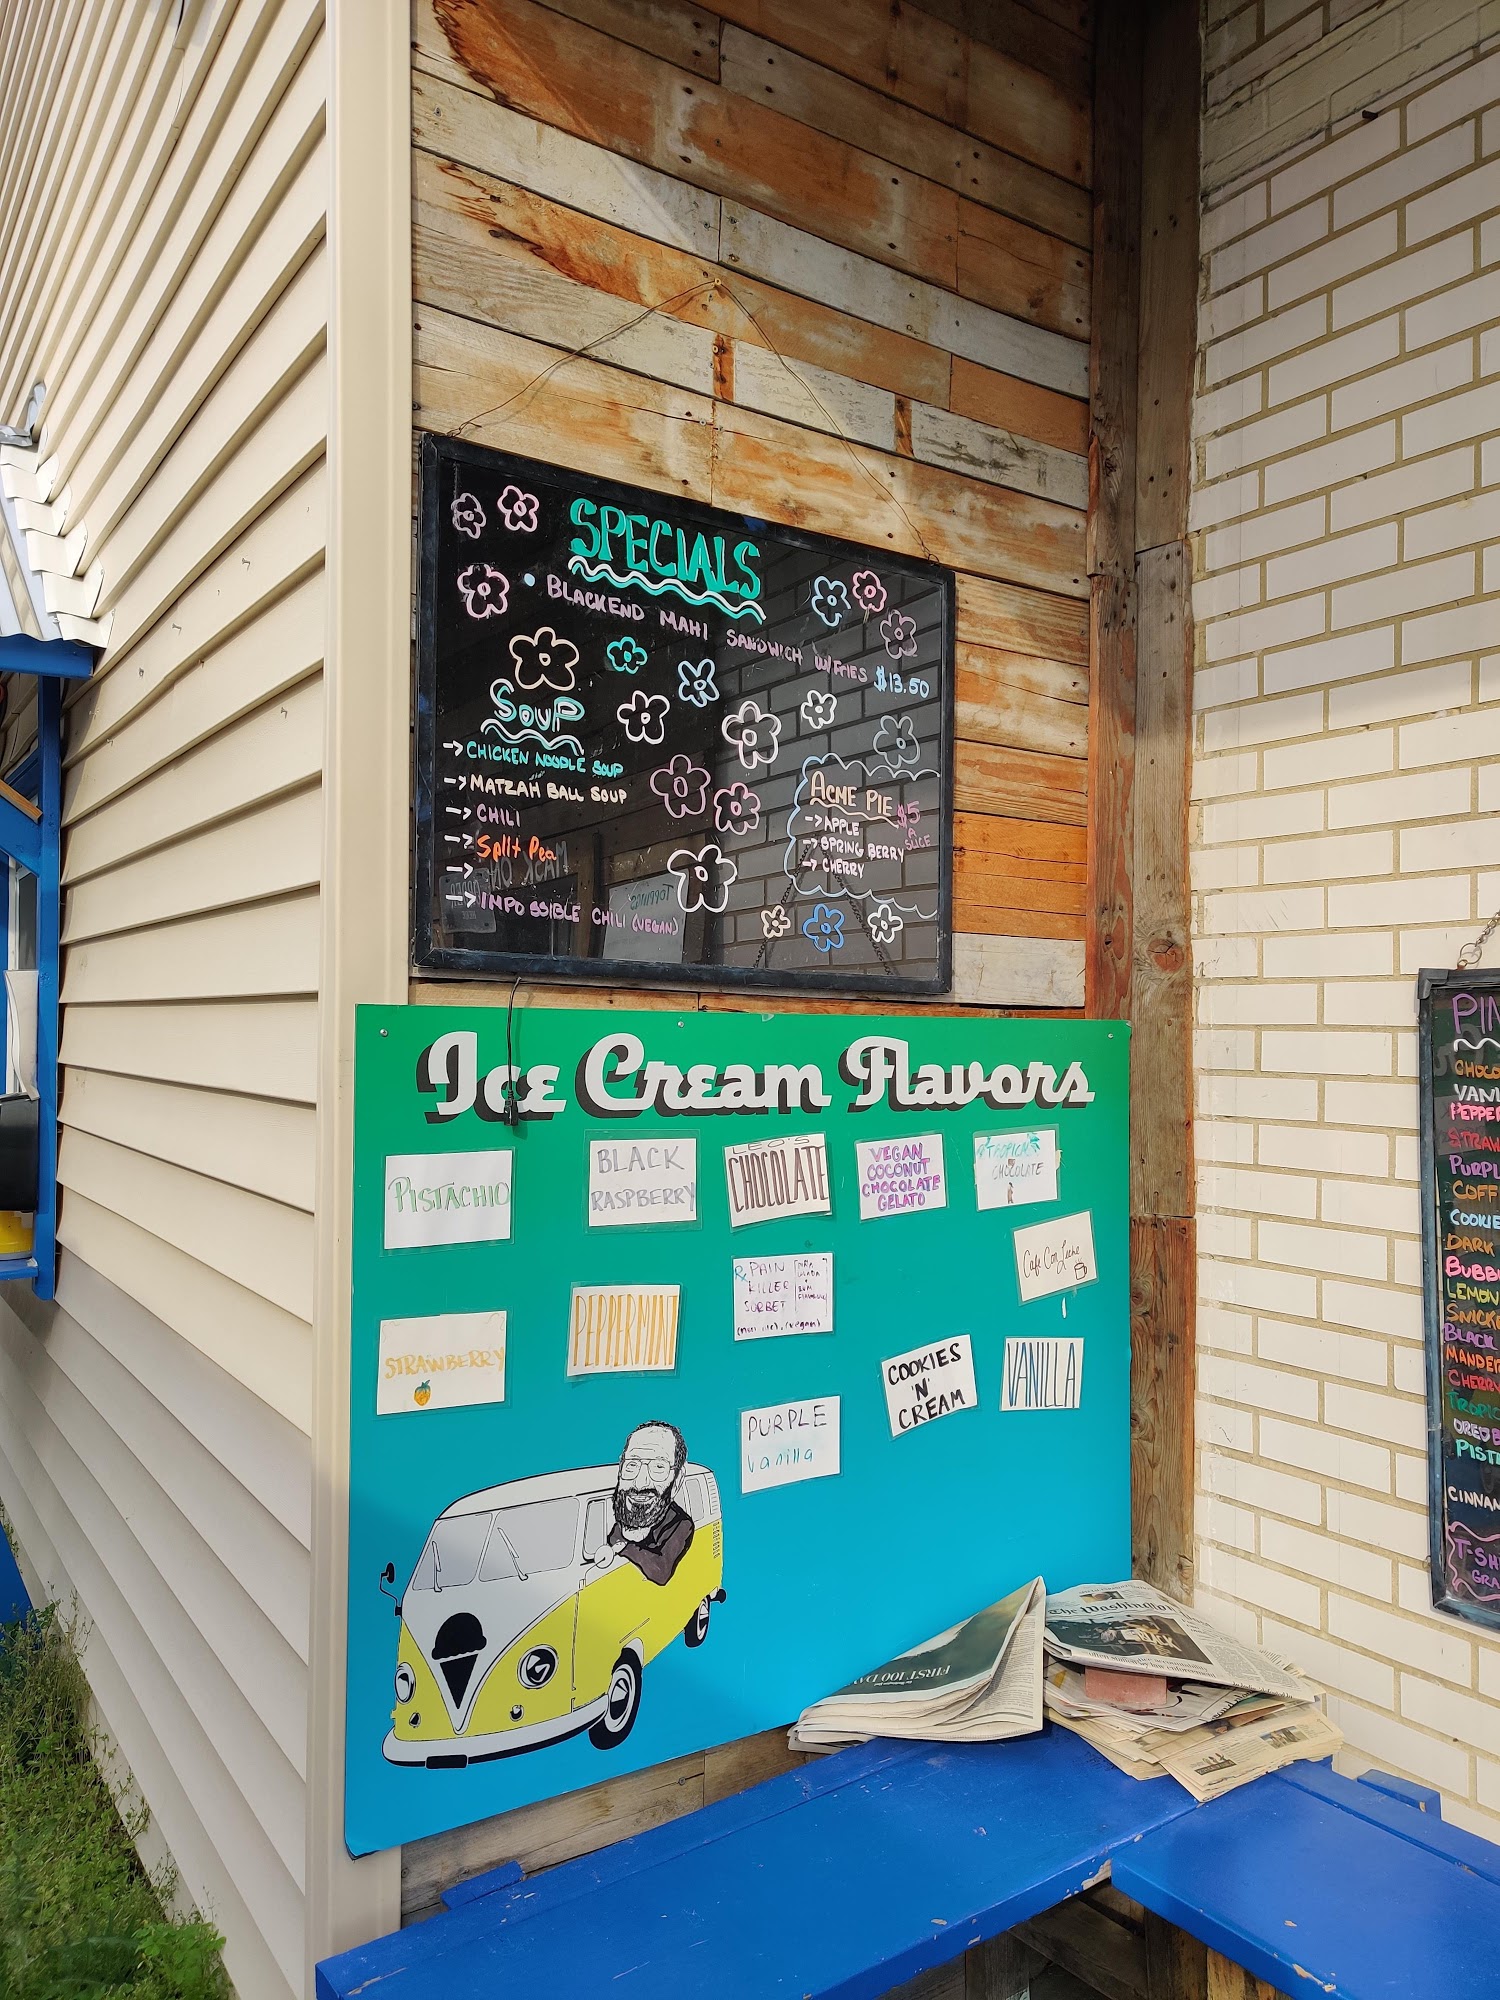 SPECIALS
• BLACKEND MAHI SANDWICH W/FRIES $13.50
SOUP
→ CHICKEN NOODLE SOUP
→ MATZAH BALL SOUP
→ CHILI
→ Split Pea
→
→ IMPOSSIBLE CHILI (VEGAN)
ACME PIE $5
A
SLICE
→ APPLE
→ SPRING BERRY
→ CHERRY
Ice Cream Flavors
PISTACHIO
BLACK
RASPBERRY
LEO'S
CHOCOLATE
VEGAN
COCONUT
CHOCOLATE
GELATO
TROPICAL
CHOCOLATE
Cafe Con Leche
STRAWBERRY
PEPPERMINT
PAIN
KILLER
SORBET
(vegan)
COOKIES
'N'
CREAM
VANILLA
PURPLE
vanilla
PIN
CHOCO
VANI
PEPPER
STRAW
PURPL
COFF
COOKIE
DARK
BUBB
LEMON
SNICK
BLACK
MANDER
CHERRY
TROPIC
OREO B
PIST
CINNAM
T-SH
GRA
FIRST 100 DA
The Washington